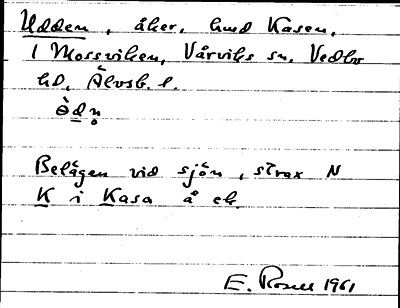 Udden, åker, hmd Kasen,
1 Mossviken, Vårviks sn. Vedbo
hd, Älvsb. l.
Belägen vid sjön, strax N
K i Kasa å ek.
E. Rosell 1961